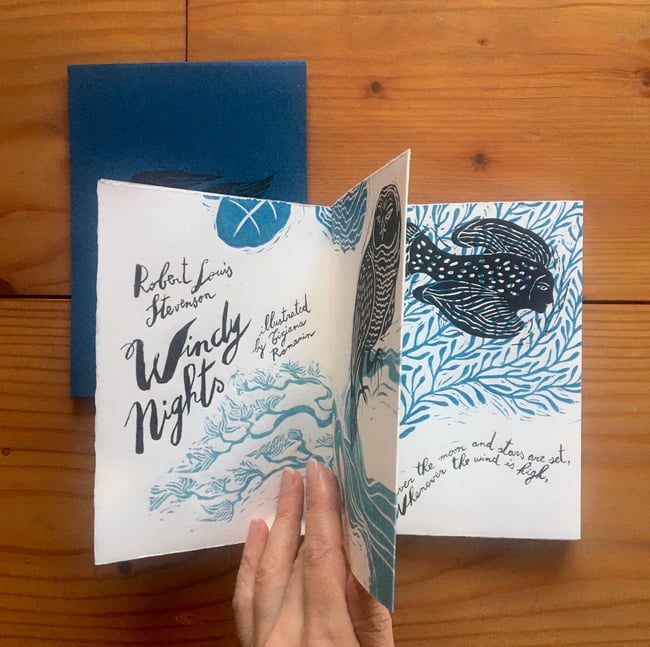 Robert Louis
Stevenson
Windy
Nights
illustrated
by Tiziana
Romanin
the moon and stars are set,
Whenever the wind is high,